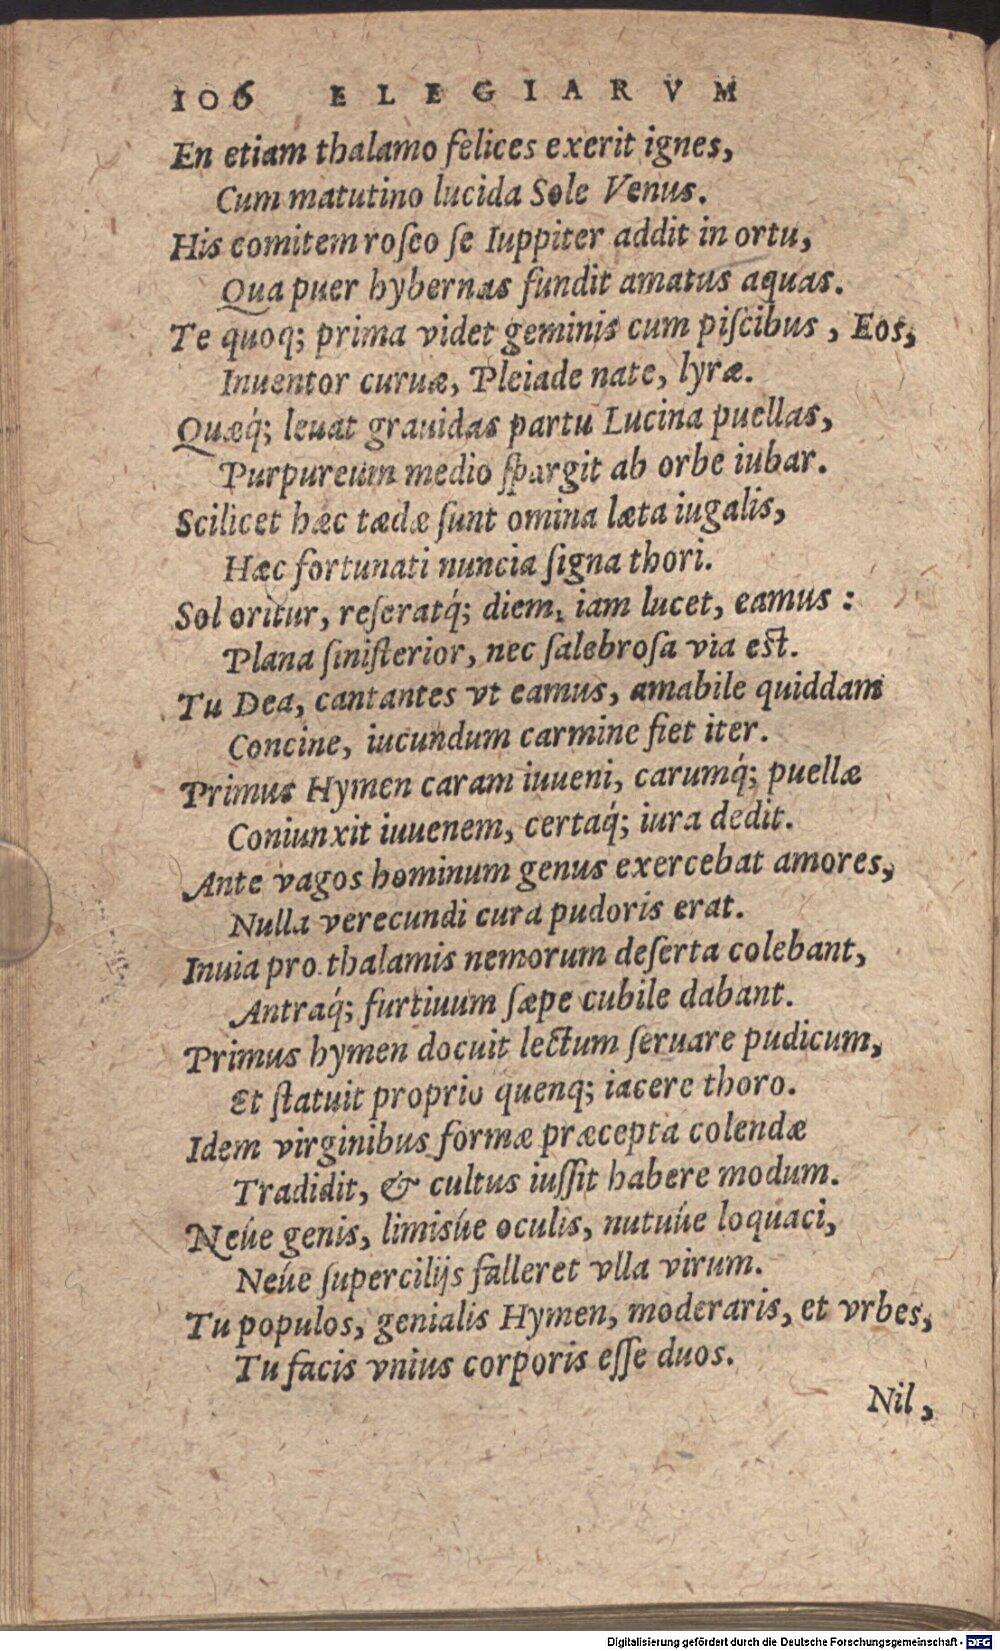 106 ELEGIARVM
En etiam thalamo felices exerit ignes,
Cum matutino lucida Sole Venus.
His comitem roſeo ſe Iuppiter addit in ortu,
Qua puer hybernas fundit amatus aquas.
Te quoq; prima videt geminis cum piſcibus, Eos,
Inuentor curuæ, Pleiade nate, lyræ.
Quæq́; leuat grauidas partu Lucina puellas,
Purpureum medio ſpargit ab orbe iubar.
Scilicet hæc tædæ ſunt omina læta iugalis,
Hæc fortunati nuncia ſigna thori.
Sol oritur, reſeratq́; diem, iam lucet, eamus:
Plana ſiniſterior, nec ſalebroſa via est.
Tu Dea, cantantes vt eamus, amabile quiddam
Concine, iucundum carmine fiet iter.
Primus Hymen caram iuueni, carumq́; puellæ
Coniunxit iuuenem, certaq́; iura dedit.
Ante vagos hominum genus exercebat amores,
Nulla verecundi cura pudoris erat.
Inuia pro thalamis nemorum deſerta colebant,
Antraq́; furtiuum ſæpe cubile dabant.
Primus hymen docuit lectum ſeruare pudicum,
Et ſtatuit proprio quenq; iacere thoro.
Idem virginibus formæ præcepta colendæ
Tradidit, & cultus iuſſit habere modum.
Neúe genis, limisúe oculis, nutuúe loquaci,
Neúe ſupercilijs falleret vlla virum.
Tu populos, genialis Hymen, moderaris, et vrbes,
Tu facis vnius corporis eſſe duos.
Nil,
Digitalisierung gefördert durch die Deutsche Forschungsgemeinschaft - DFG